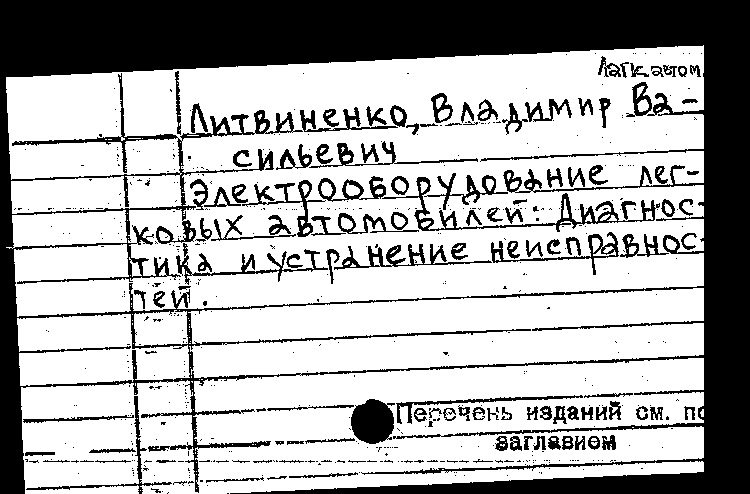 Легк. автом.
Литвиненко, Владимир Ва-
сильевич
Электрооборудование лег-
ковых автомобилей: Диагнос-
тика и устранение неисправнос-
тей.
Перечень изданий см. по
заглавием